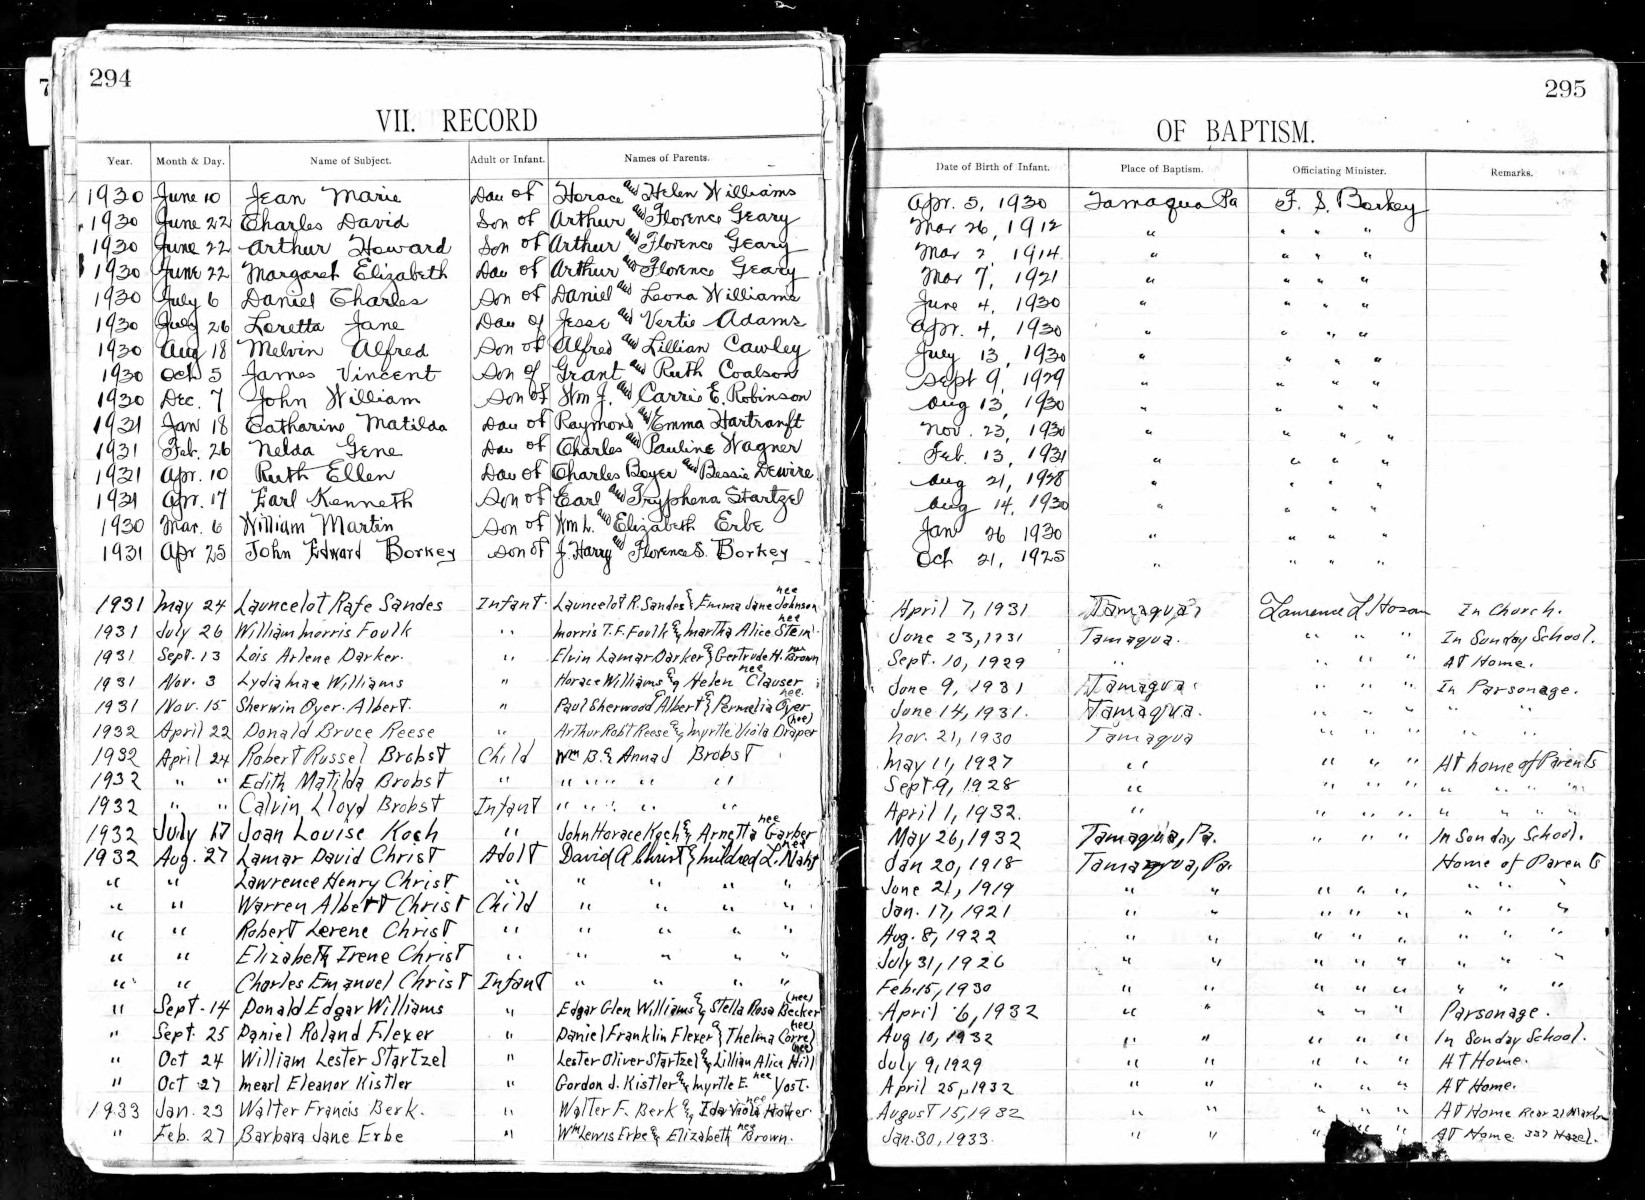 294
VII. RECORD
Year. Month & Day. Name of Subject. Adult or Infant. Names of Parents.
1930 June 10 Jean Marie Dau of Horace and Helen Williams
1930 June 22 Charles David Son of Arthur and Florence Geary
1930 June 22 Arthur Howard Son of Arthur and Florence Geary
1930 June 22 Margaret Elizabeth Dau of Arthur and Florence Geary
1930 July 6 Daniel Charles Son of Daniel and Leona Williams
1930 July 26 Loretta Jane Dau of Jesse and Vertie Adams
1930 Aug 18 Melvin Alfred Son of Alfred and Lillian Cawley
1930 Oct 5 James Vincent Son of Grant and Ruth Coalson
1930 Dec. 7 John William Son of Wm J. and Carrie E. Robinson
1931 Jan 18 Catharine Matilda Dau of Raymond and Emma Hartranft
1931 Feb. 26 Nelda Gene Dau of Charles and Pauline Wagner
1931 Apr. 10 Ruth Ellen Dau of Charles Boyer and Bessie Dewire
1931 Apr. 17 Earl Kenneth Son of Earl and Tryphena Startzel
1930 Mar. 6 William Martin Son of Wm L. and Elizabeth Erbe
1931 Apr 25 John Edward Borkey Son of J. Harry and Florence S. Borkey
1931 May 24 Launcelot Rafe Sandes Infant. Launcelot R. Sandes & Emma Jane nee Johnson
1931 July 26 William Morris Foulk " Morris T. F. Foulk & Martha Alice nee Stein
1931 Sept. 13 Lois Arlene Darker. " Elvin Lamar Darker & Gertrude H. nee Brown
1931 Nov. 3 Lydia Mae Williams " Horace Williams & Helen nee Clauser
1931 Nov. 15 Sherwin Oyer Albert. " Paul Sherwood Albert & Permelia nee Oyer
1932 April 22 Donald Bruce Reese " Arthur Robt Reese & Myrtle Viola (nee) Draper
1932 April 24 Robert Russel Brobst Child Wm B. & Anna J Brobst
1932 " " Edith Matilda Brobst " " " " " "
1932 " " Calvin Lloyd Brobst Infant " " " " "
1932 July 17 Joan Louise Koch " John Horace Koch & Arnetta nee Garber
1932 Aug. 27 Lamar David Christ Adolt David A Christ & Mildred L. nee Nahf
" " Lawrence Henry Christ " " " " " "
" " Warren Albert Christ Child " " " "
" " Robert Lerene Christ " " " " " "
" " Elizabeth Irene Christ " " " " " "
" " Charles Emanuel Christ Infant " " " "
" Sept. 14 Donald Edgar Williams " Edgar Glen Williams & Stella Rosa (nee) Becker
" Sept. 25 Daniel Roland Flexer " Daniel Franklin Flexer & Thelma (nee) Correl
" Oct 24 William Lester Startzel " Lester Oliver Startzel & Lillian Alice (nee) Hill
" Oct 27 Mearl Eleanor Kistler " Gordon J. Kistler & Myrtle E. nee Yost.
1933 Jan. 23 Walter Francis Berk. " Walter F. Berk & Ida Viola nee
" Feb. 27 Barbara Jane Erbe " Wm Lewis Erbe & Elizabeth nee Brown.
295
OF BAPTISM.
Date of Birth of Infant. Place of Baptism. Officiating Minister. Remarks.
Apr. 5, 1930 Tamaqua Pa F. S. Borkey
Mar 26, 1912 " " " "
Mar 2, 1914 " " " "
Mar 7, 1921 " " " "
June 4, 1930 " " " "
Apr. 4, 1930 " " " "
July 13, 1930 " " " "
Sept 9, 1929 " " " "
Aug 13, 1930 " " " "
Nov. 23, 1930 " " " "
Feb. 13, 1931 " " " "
Aug 21, 1928 " " " "
Aug 14, 1930 " " " "
Jan 26 1930 " " " "
Oct 21, 1925 " " " "
April 7, 1931 Tamaqua Lawrence L. Hosan In Church.
June 23, 1931 Tamaqua. " " " In Sunday School.
Sept. 10, 1929 " " " " At Home.
June 9, 1931 Tamaqua. " " " In Parsonage.
June 14, 1931. Tamaqua. " " " " "
Nov. 21, 1930 Tamaqua " " " " "
May 11, 1927 " " " " At home of Parents
Sept 9, 1928 " " " " " " " "
April 1, 1932. " " " " " " " "
May 26, 1932 Tamaqua, Pa. " " " In Sonday School.
Jan 20, 1918 Tamaqua, Pa. Home of Parents
June 21, 1919 " " " " " " " "
Jan. 17, 1921 " " " " " " " "
Aug. 8, 1922 " " " " " " " "
July 31, 1926 " " " " " " " "
Feb. 15, 1930 " " " " " " " "
April 6, 1932 " " " " " Parsonage.
Aug 10, 1932 " " " " " In Sonday School.
July 9, 1929 " " " " " At Home.
April 25, 1932 " " " " " At Home.
August 15, 1932 " " " " " At Home Rear 21
Jan. 30, 1933. " " " " " At Home 337 Hazel.